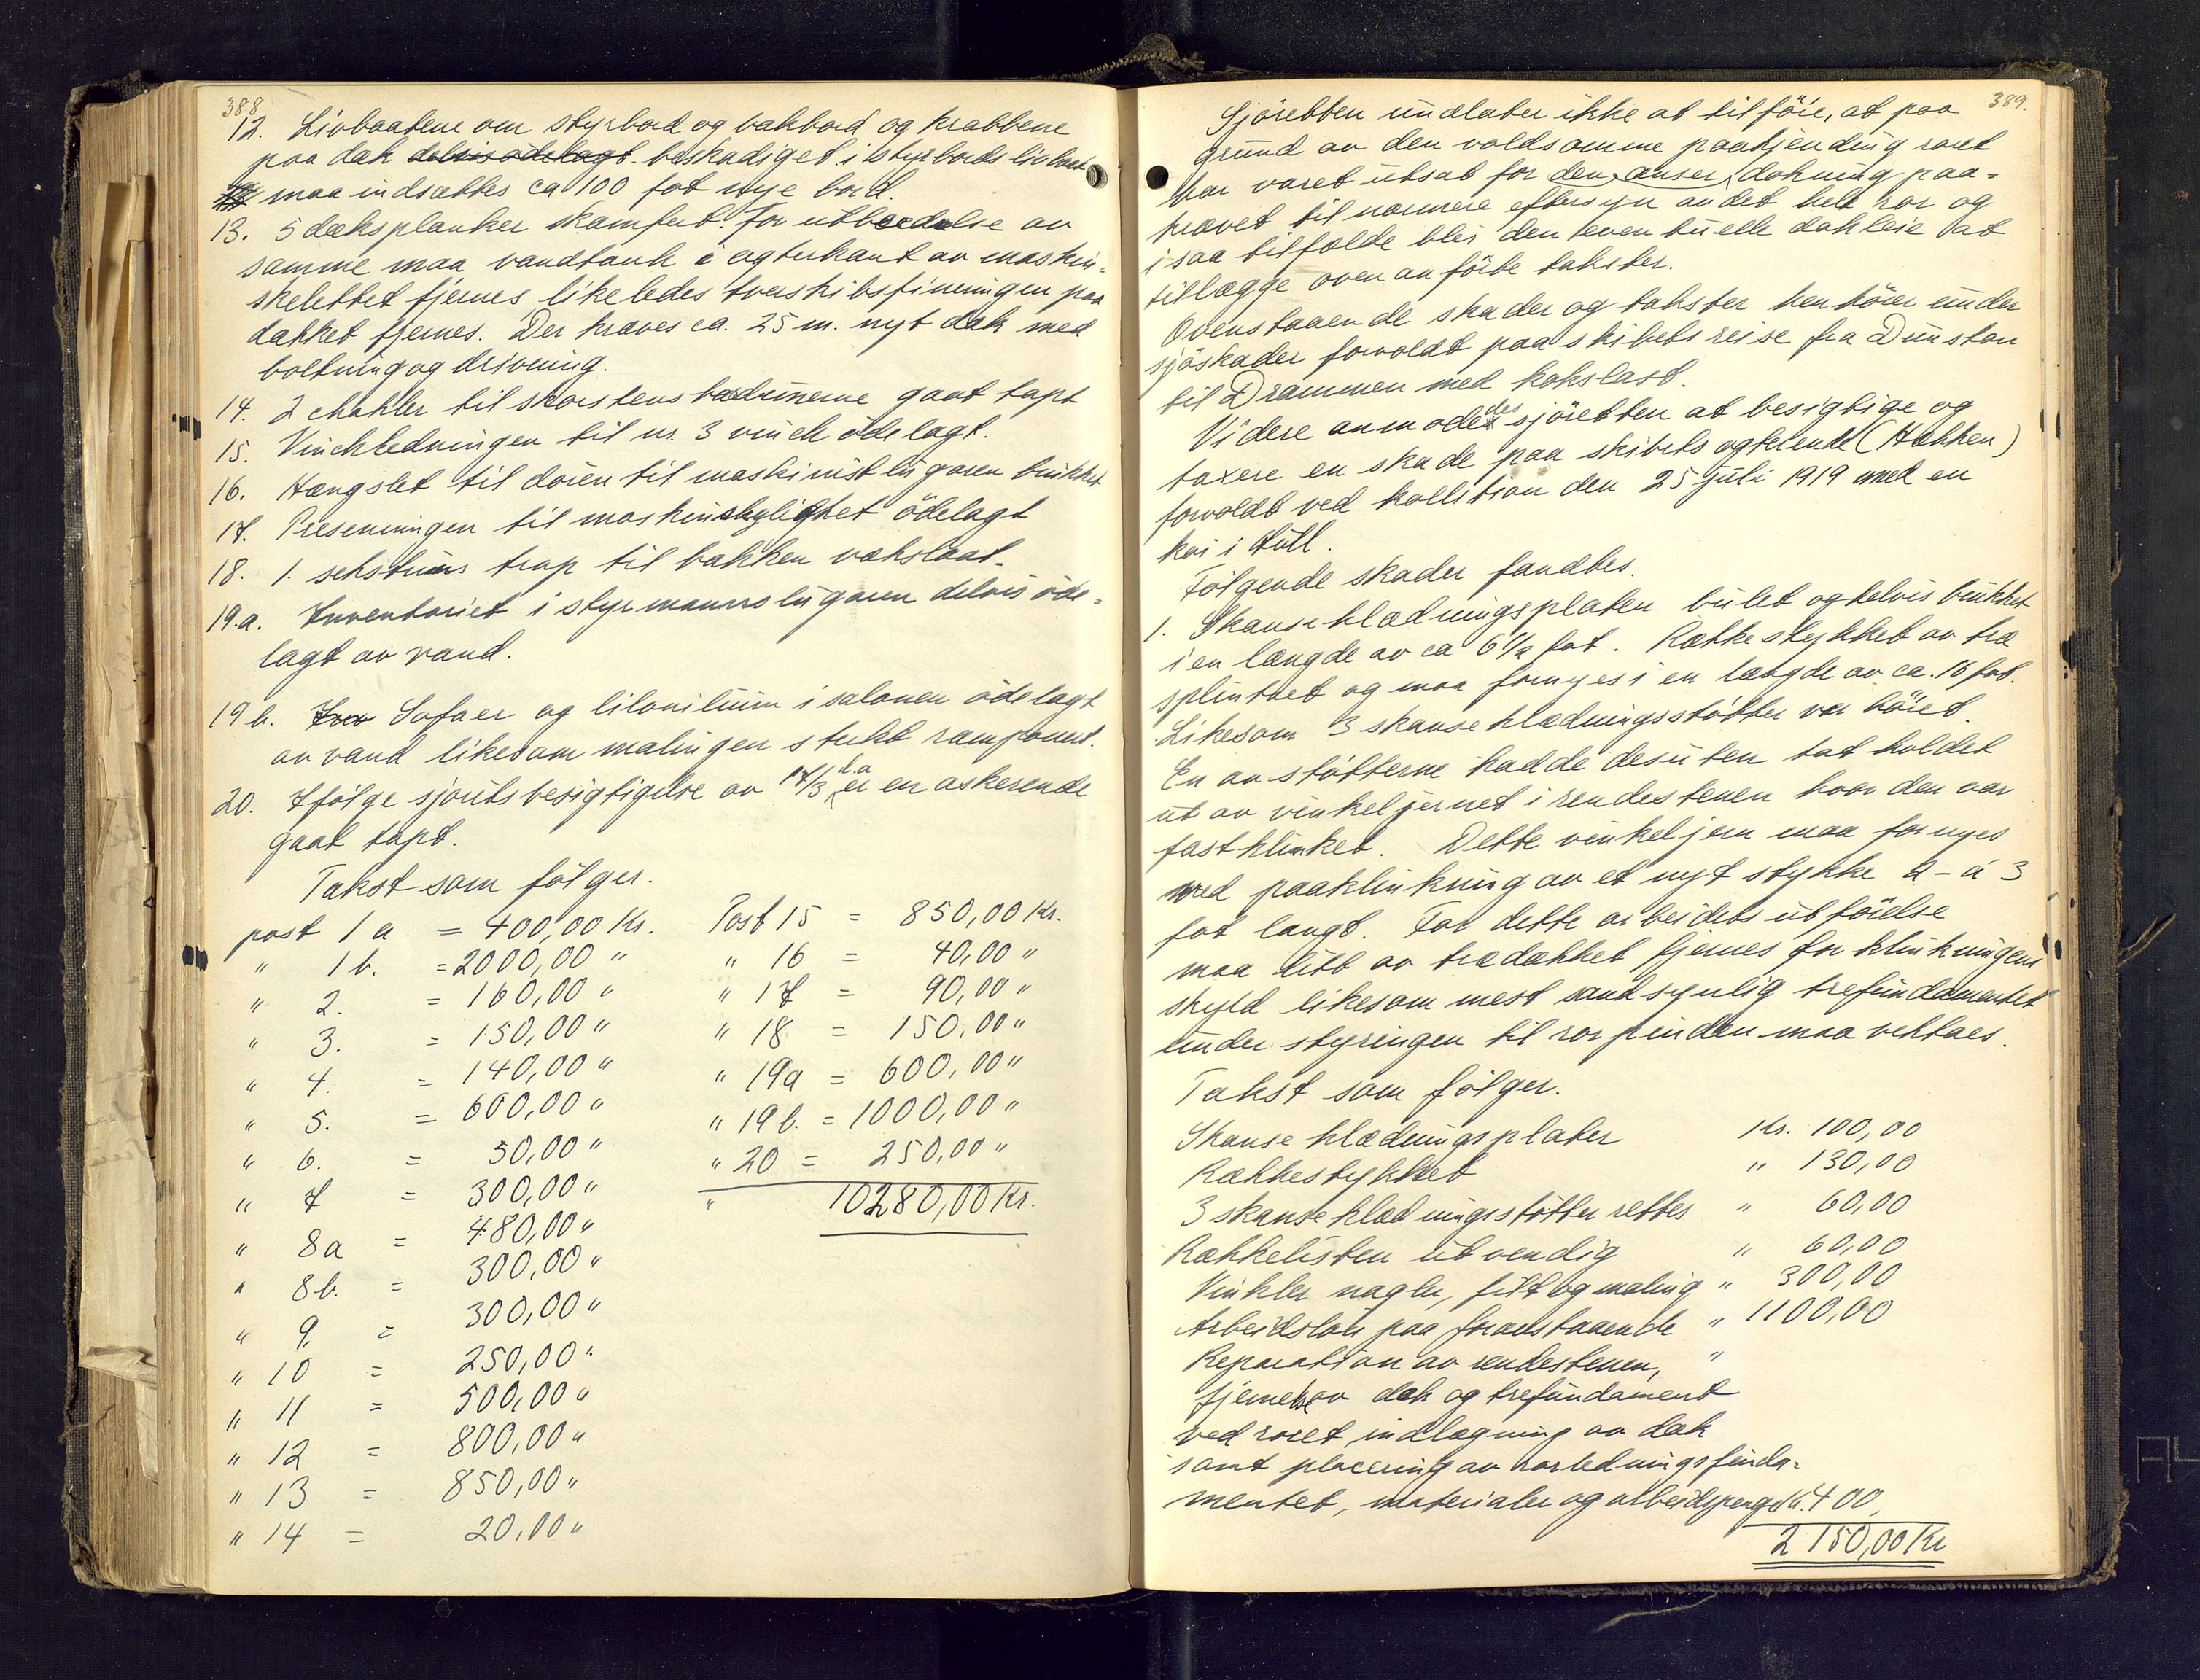 388
12. Livbaatene om styrbord og bakbord og krabbene
paa dæk delvis ødelagt. beskadiget i styrbords livbaat
maa indsættes ca 100 fot nye bord.
13. 5 dæksplanker skamfert. For utbedrelse av
samme maa vandtank i agterkant av maskin-
skelettet fjernes, likeledes tverskibsfineringen paa
dækket fjernes. Der kræves ca. 25 m. nyt dæk med
boltning og drivning.
14. 2 chakler til skorstensbardunerne gaat tapt
15. Vinchledningen til nr. 3 vinch ødelagt.
16. Hængslet til døren til maskinistlugaren brukket
17. Preseningen til maskinskylight ødelagt
18. 1. sekstrins trap til bakken vækslaat.
19.a. Inventariet i styrmannslugaren delvis øde-
lagt av vand.
19 b. Inv Sofaer og lilonilium i salonen ødelagt
av vand likesom malingen sterkt ramponert.
20. Ifølge sjøretsbesigtigelse av 17/3 d.a er en askerende
gaat tapt.
Takst som følger.
post 1 a = 400,00 Kr. Post 15 = 850,00 Kr.
" 1 b. = 2000,00 " " 16 = 40,00 "
" 2. = 160,00 " " 17 = 90,00 "
" 3. = 150,00 " " 18 = 150,00 "
" 4. = 140,00 " " 19a = 600,00 "
" 5. = 600,00 " " 19 b. = 1000,00 "
" 6. = 50,00 " " 20 = 250,00 "
" 7 = 300,00 " " 10280,00 Kr.
" 8a = 480,00 "
" 8b. = 300,00 "
" 9. = 300,00 "
" 10 = 250,00 "
" 11 = 500,00 "
" 12 = 800,00 "
" 13 = 850,00 "
" 14 = 20,00 "
389.
Sjøretten undlater ikke at tilføie, at paa
grund av den voldsomme paakjending roret
har været utsat for den anser dokning paa-
krævet til nærmere eftersyn av det hele ror og
i saa tilfælde blir den eventuelle dokleie at
tillægge ovenanførte takster.
Ovenstaaende skader og takster henhører under
sjøskader forvoldt paa skibets reise fra Dunston
til Drammen med kokslast.
Videre anmodedes sjøretten at besigtige og
taxere en skade paa skibets agterende (Hækken)
forvoldt ved kollision den 25 Juli 1919 med en
kai i Hull.
Følgende skader fandtes.
1. Skanseklædningsplaten bulet og delvis brukket
i en længde av ca 6 1/2 fot. Rækkestykket av træ
splintret og maa fornyes i en længde av ca. 16 fot.
Likesom 3 skanseklædningsstøtter var bøiet.
En av støtterne hadde desuten tat holdet
ut av vinkeljernet i rendestenen hvor den var
fastklinket. Dette vinkeljern maa fornyes
med paaklinkning av et nyt stykke 2 - á 3
fot langt. For dette arbeidets utførelse
maa litt av trædækket fjernes for klinkningens
skyld likesom mest sandsynlig trefundamentet
under styringen til rorpinden maa vektaes.
Takst som følger.
Skanseklædningsplater Kr. 100,00
Rækkestykket " 130,00
3 skanseklædningsstøtter rettes " 60,00
Rækkelisten utvendig " 60,00
Vinkler nagler, filt og maling " 300,00
Arbeidsløn paa foranstaaende " 1100,00
Reparation av rendestenen, "
fjernelse av dæk og trefundament
ved roret, indlægning av dæk
samt placering av rorledningsfunda-
mentet, materialer og arbeidspenge Kr. 400
2 150,00 Kr